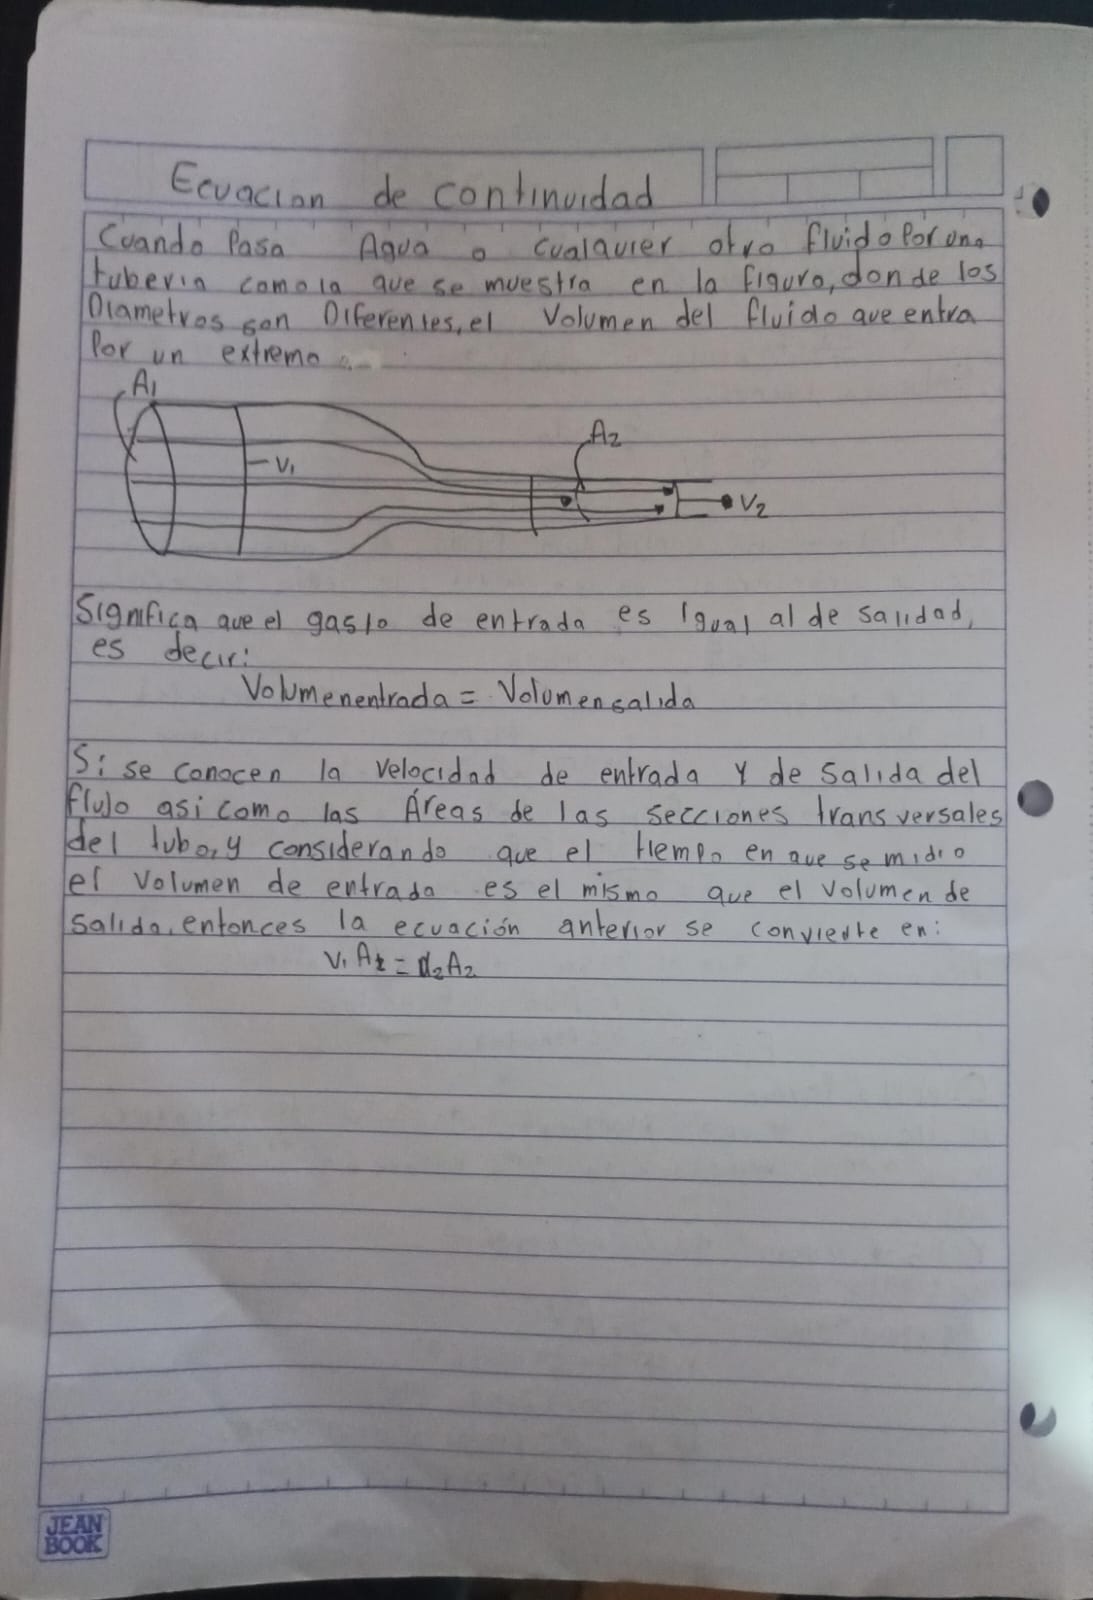 Ecuacion de continuidad
Cuando Pasa Agua o cualquier otro fluido Por una
tuberia como la que se muestra en la figura, donde los
Diametros son Diferentes, el Volumen del fluido que entra
Por un extremo
A1
A2
V1
V2
Significa que el gasto de entrada es Igual al de salidad,
es decir:
Volumenentrada = Volumensalida
Si se conocen la velocidad de entrada Y de salida del
flujo asi como las Áreas de las secciones transversales
del tubo, y considerando que el tiempo en que se midio
el volumen de entrada es el mismo que el volumen de
salida, entonces la ecuación anterior se convierte en:
JEAN
BOOK